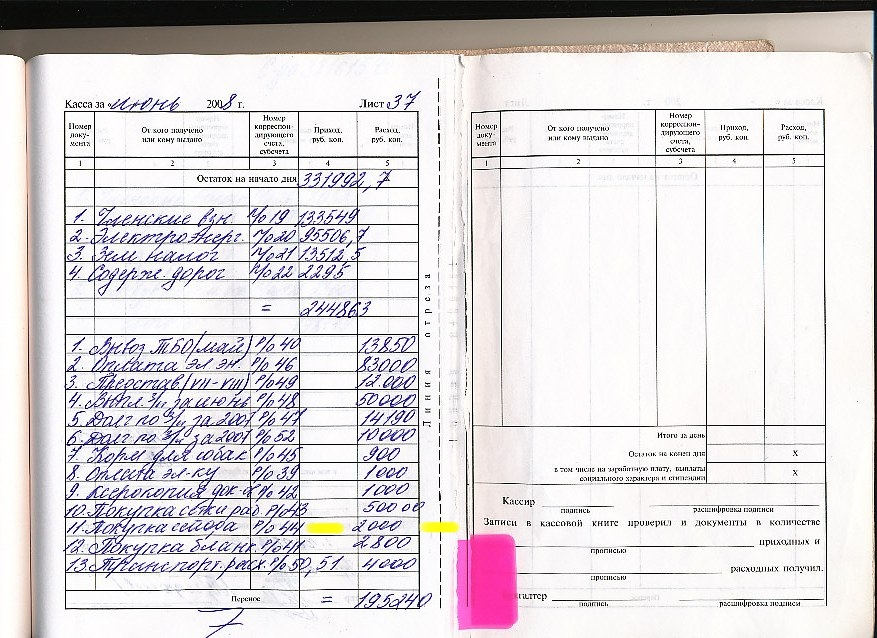 Касса за «июнь 2008 г. Лист 37
Номер доку- мента От кого получено или кому выдано Номер корреспон- дирующего счета, субсчета Приход, руб. коп. Расход, руб. коп.
1 2 3 4 5
Остаток на начало дня 331992,7
1. Членские взн п/о 19 133549
2. Электроэнерг. п/о 20 95506,7
3. Зем. налог п/о 21 13512,5
4. Содерж. дорог п/о 22 2295
= 244863
1. Вывоз ТБО (май) Р/о 40 13850
2. Оплата эл эн. Р/о 46 83000
3. Представ. Р/о 49 12.000
4. Выпл. з/п за июнь Р/о 48 50000
5. Долг по з/п за 2007 Р/о 47 14190
6. Долг по з/п за 2007 Р/о 52 10000
7. Корм для собак Р/о 45 900
8. Оплата эл-ку Р/о 39 1000
9. Ксерокопия док-в Р/о 42 1000
10. Покупка Р/о 43 500 00
11. Покупка Р/о 44 2000
12. Покупка бланк. Р/о 41 2.800
13. Транспорт. расх. Р/о 50, 51 4000
Перенос = 195240
Линия отреза
Номер доку- мента От кого получено или кому выдано Номер корреспон- дирующего счета, субсчета Приход, руб. коп. Расход, руб. коп.
1 2 3 4 5
Итого за день
Остаток на конец дня X
в том числе на заработную плату, выплаты
социального характера и стипендии X
Кассир
подпись расшифровка подписи
Записи в кассовой книге проверил и документы в количестве
приходных и
прописью
расходных получил.
прописью
галтер
подпись расшифровка подписи